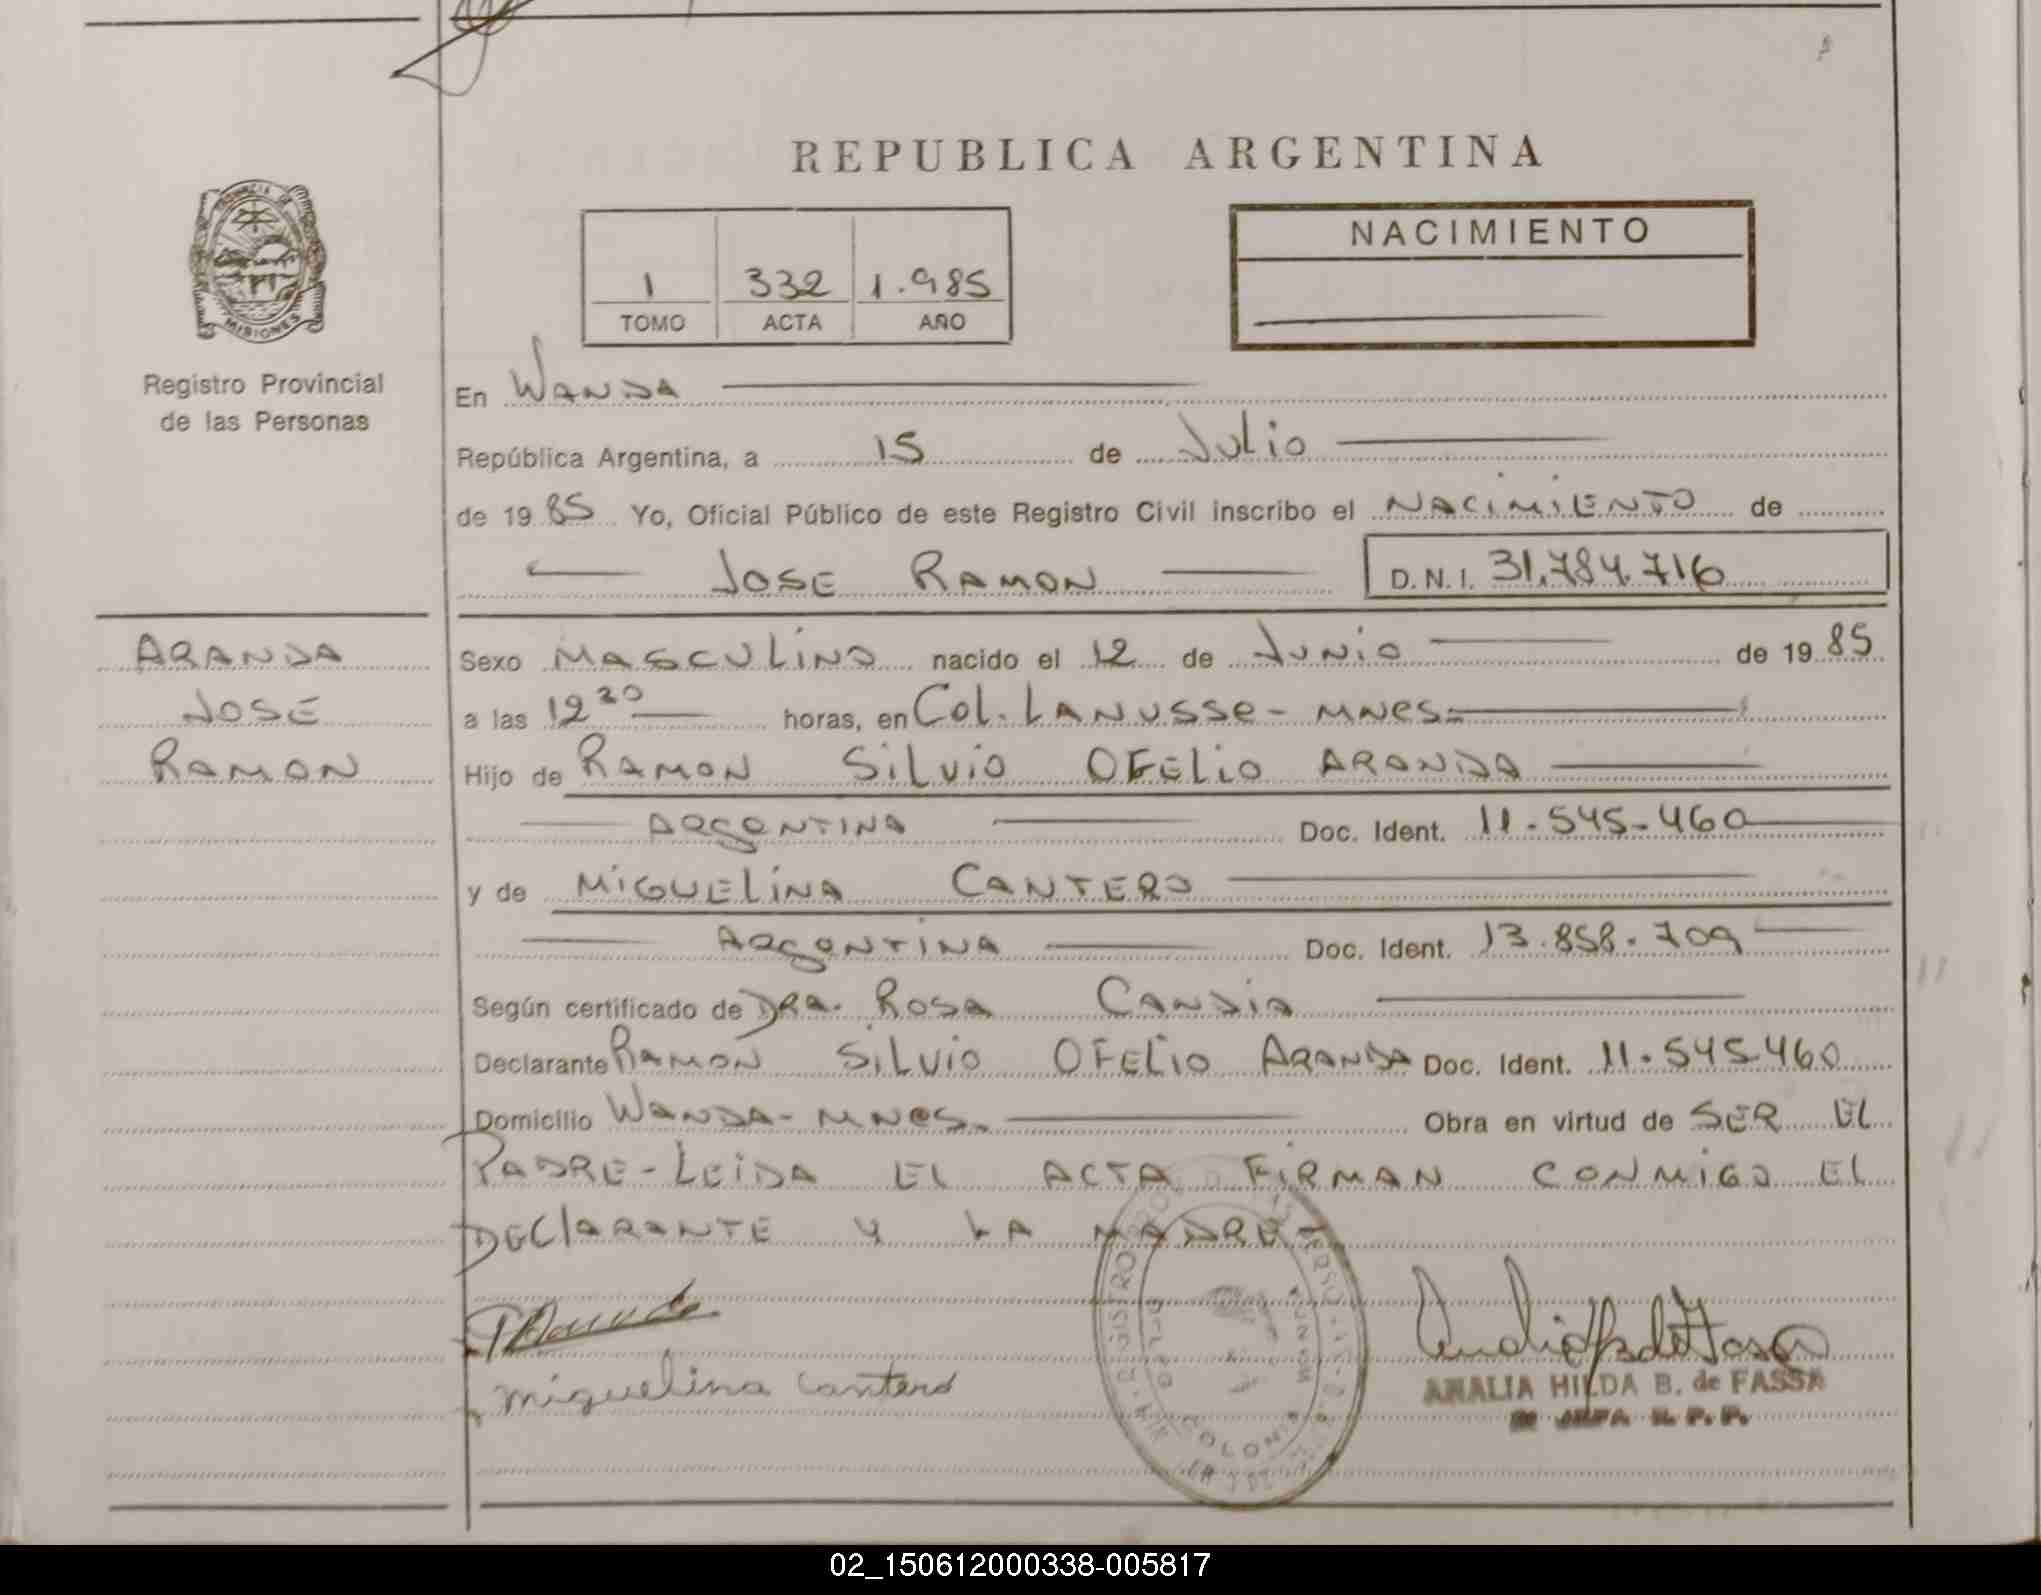 REPUBLICA ARGENTINA
NACIMIENTO
1 332 1.985
TOMO ACTA AÑO
MISIONES
Registro Provincial
de las Personas
En WANDA
República Argentina, a 15 de JULIO
de 19 85 Yo, Oficial Público de este Registro Civil inscribo el NACIMIENTO de
JOSE RAMON D.N.I. 31.784.716
ARANDA
JOSE
RAMON
Sexo MASCULINO nacido el 12 de JUNIO de 19 85
a las 12 horas, en Col. LANUSSE - MNES.
Hijo de RAMON SILVIO OFELIO ARANDA
ARGENTINA Doc. Ident. 11.545.460
y de MIGUELINA CANTERO
ARGENTINA Doc. Ident. 13.858.709
Según certificado de DRA. ROSA CANDIA
Declarante RAMON SILVIO OFELIO ARANDA Doc. Ident. 11.545.460
Domicilio WANDA - MNES. Obra en virtud de SER EL
PADRE - LEIDA EL ACTA FIRMAN CONMIGO EL
DECLARANTE Y LA MADRE
Miguelina Cantero
ANALIA HILDA B. de FASSA
02_150612000338-005817